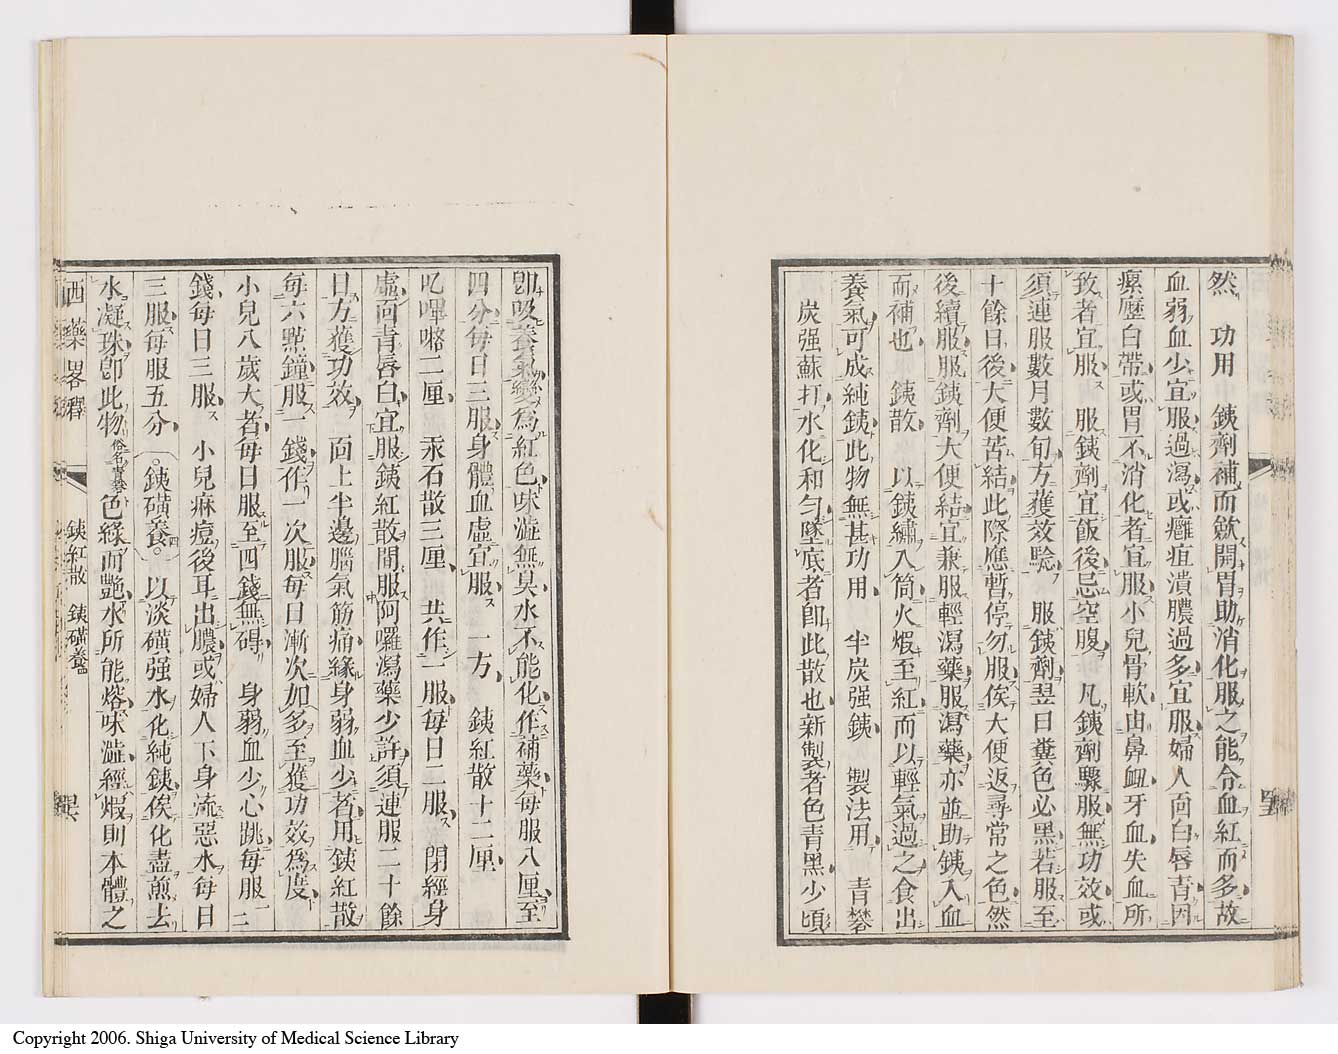 然　功用　銕劑補而斂開胃助消化服之能令血紅而多故
血弱血少宜服過瀉或癰疽潰膿過多宜服婦人面白唇青因
瘰癧白帶或胃不消化者宜服小兒骨軟由鼻衄牙血失血所
致者宜服　服銕劑宜飯後忌空腹　凡銕劑驟服無功效或
須連服數月數旬方獲效驗　服銕劑翌日糞色必黑若服至
十餘日後大便苦結此際應暫停勿服俟大便返尋常之色然
後續服服銕劑大便結宜兼服輕瀉藥服瀉藥亦並助銕入血
而補也　銕散　以銕繡入筒火煆至紅而以輕氣過之食出
養氣可成純銕此物無甚功用　半炭强銕　製法用　青礬
炭强蘇打水化和勻墜底者卽此散也新製者色青黑少頃
卽吸養氣變爲紅色味澁無臭水不能化作補藥每服八厘至
四分每日三服身體血虛宜服　一方　銕紅散十二厘
叱嗶嚓二厘　汞石散三厘　共作一服每日二服　閉經身
虛面青唇白宜服銕紅散間服阿囉瀉藥少許須連服二十餘
日方獲功效　面上半邊腦氣筋痛緣身弱血少者用銕紅散
每六點鐘服一錢作一次服每日漸次加多至獲功效爲度
小兒八歲大者每日服至四錢無碍　身弱血少心跳每服一二
錢每日三服　小兒麻痘後耳出膿或婦人下身流惡水每日
三服每服五分　銕磺養四　以淡磺强水化純銕俟化盡煎去
水凝珠卽此物俗名青礬色綠而艶水所能熔味澁經煆則本體之
西藥畧釋
銕紅散　銕磺養四